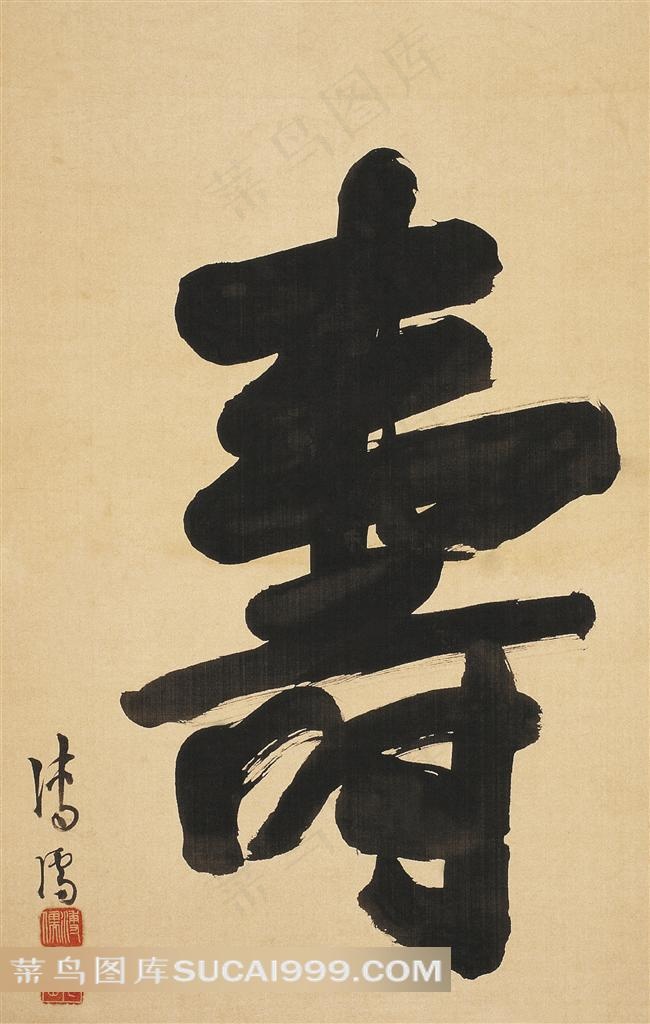 壽
溥儒
溥儒
菜鸟图库SUCAI999.COM
菜鸟图库